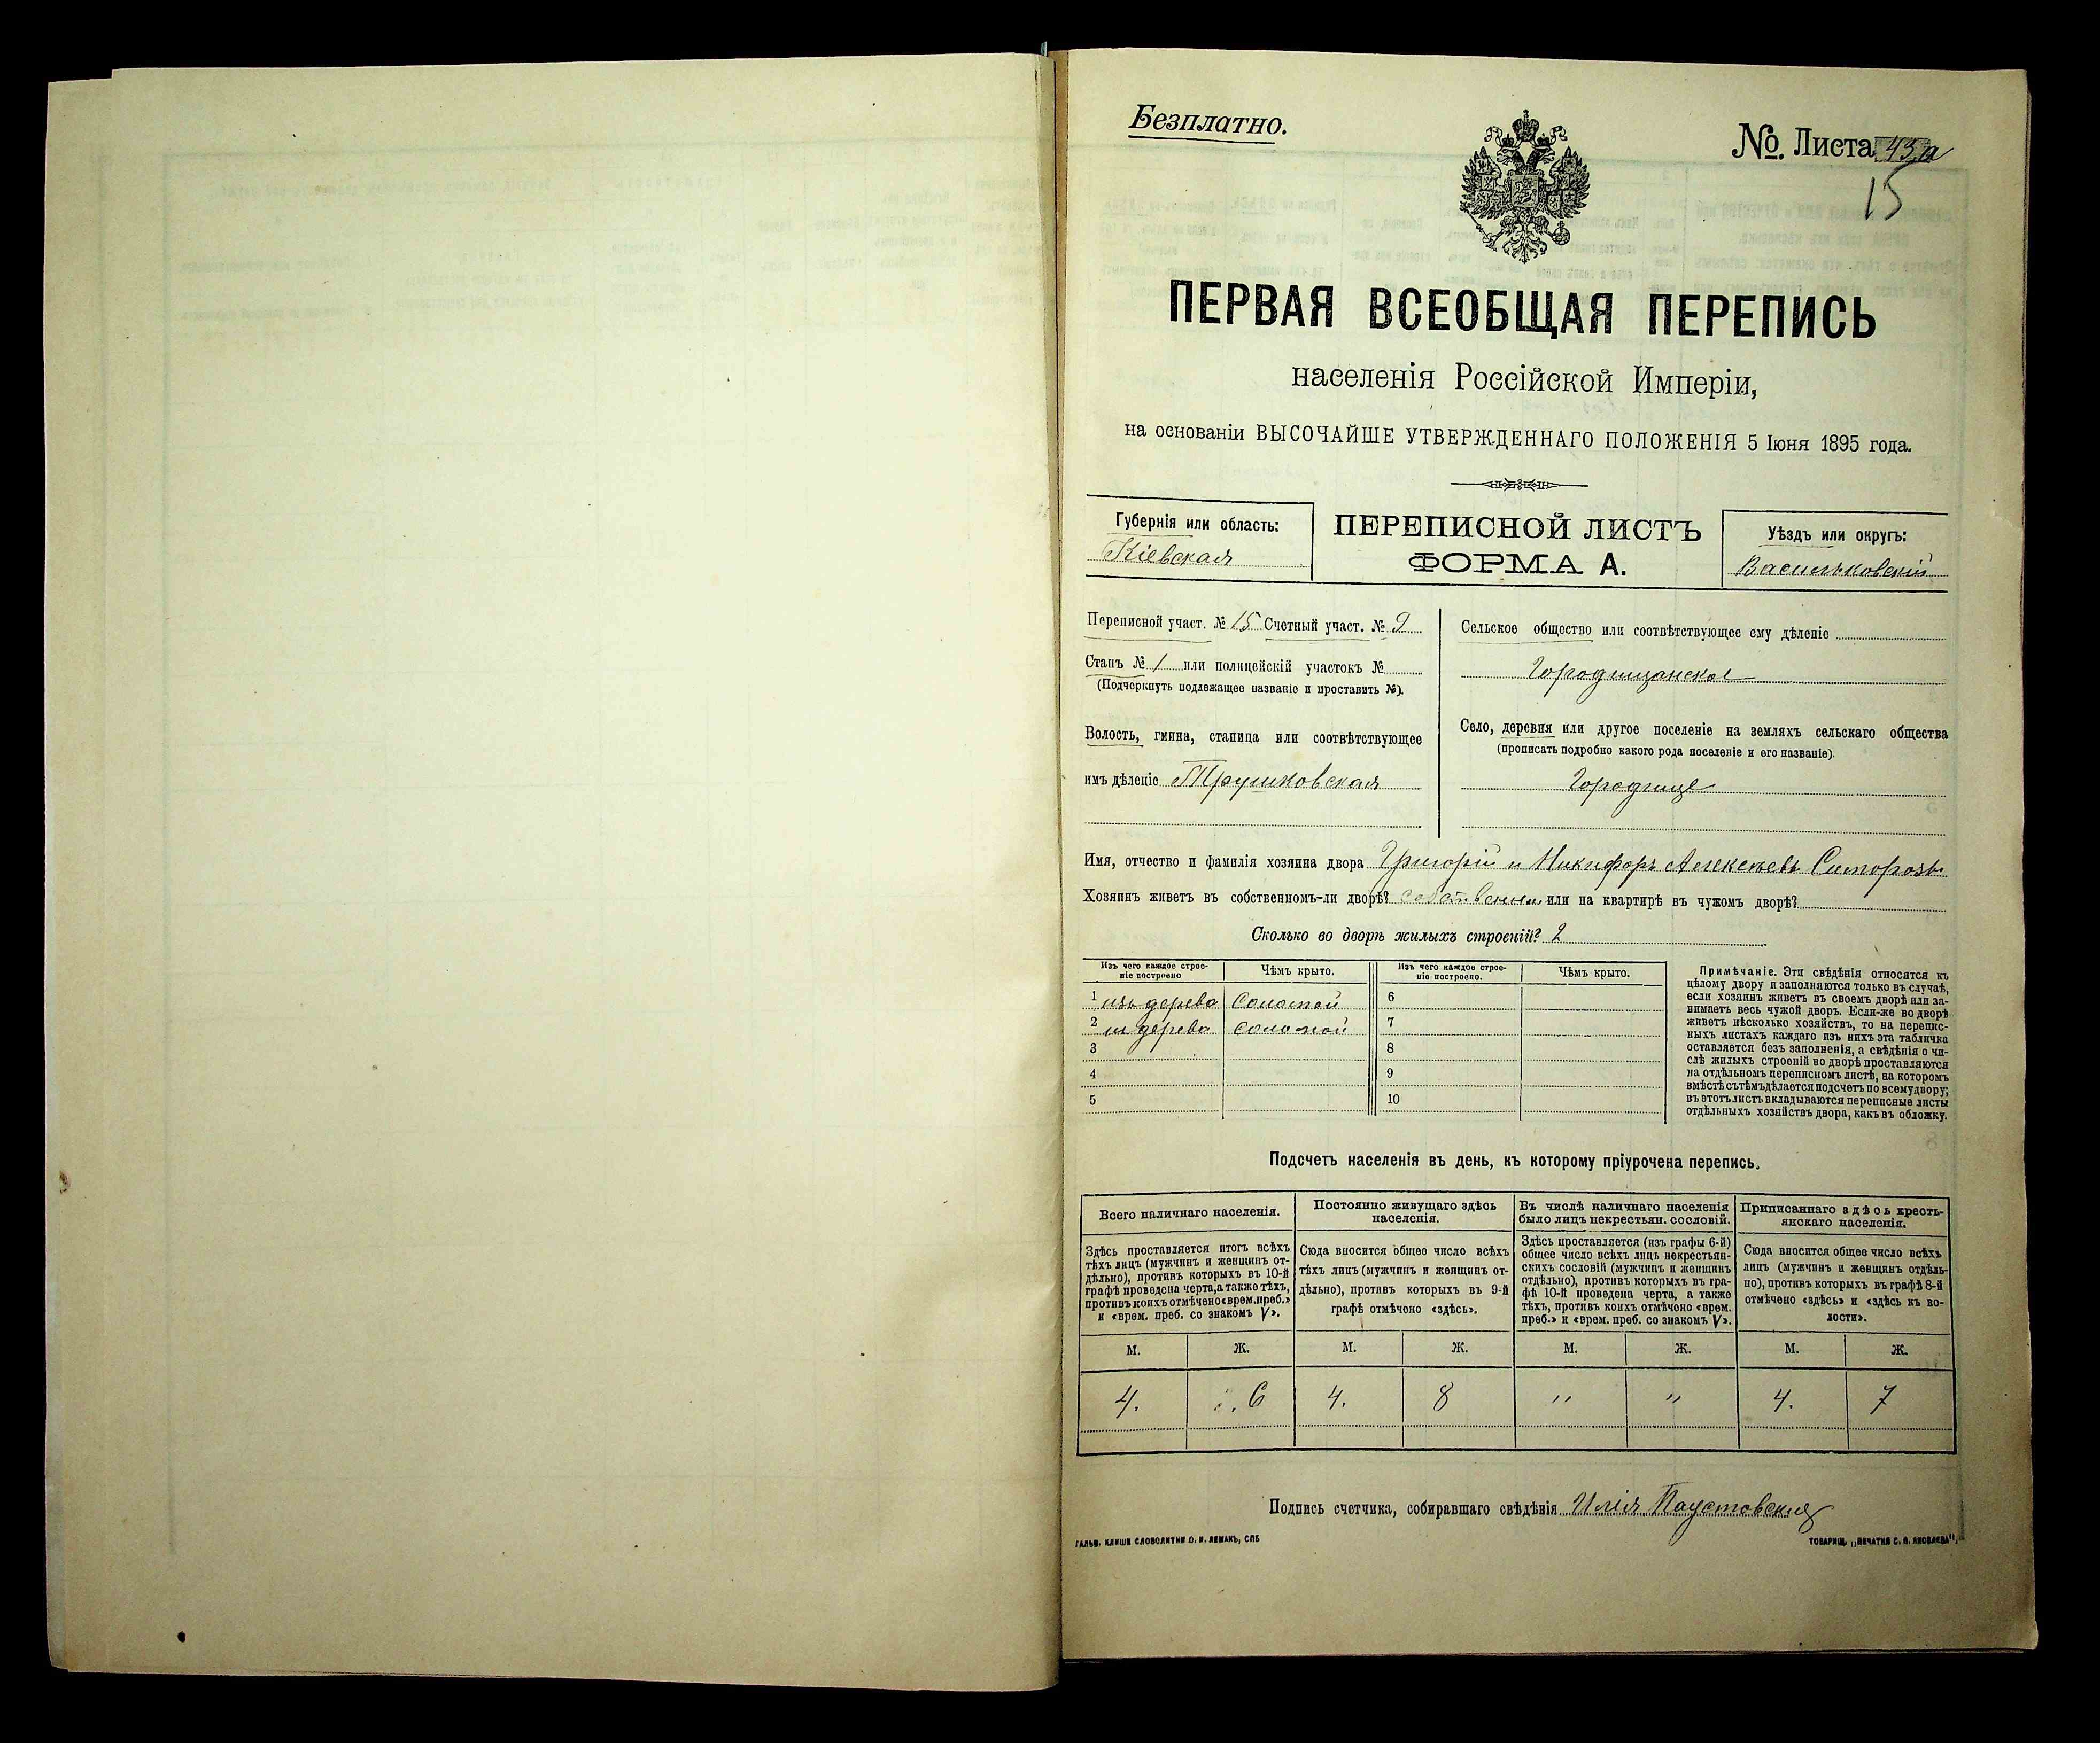 Безплатно.
№. Листа 43а
15
ПЕРВАЯ ВСЕОБЩАЯ ПЕРЕПИСЬ
населенія Россійской Имперіи,
на основаніи ВЫСОЧАЙШЕ УТВЕРЖДЕННАГО ПОЛОЖЕНІЯ 5 Іюня 1895 года.
Губернія или область:
Кіевская
ПЕРЕПИСНОЙ ЛИСТЪ
ФОРМА А.
Уѣздъ или округъ:
Васильковскій
Переписной участ. № 15 Счетный участ. № 9
Станъ № 1 или полицейскій участокъ №
(Подчеркнуть подлежащее названіе и проставить №).
Волость, гмина, станица или соотвѣтствующее
имъ дѣленіе Трушковская
Сельское общество или соотвѣтствующее ему дѣленіе
Городищанское
Село, деревня или другое поселеніе на земляхъ сельскаго общества
(прописать подробно какого рода поселеніе и его названіе).
Городище
Имя, отчество и фамилія хозяина двора Григорій и Никифоръ Алексѣевъ
Хозяинъ живетъ въ собственномъ-ли дворѣ? собственном или на квартирѣ въ чужомъ дворѣ?
Сколько во дворѣ жилыхъ строеній? 2
Изъ чего каждое строе-
ніе построено
Чѣмъ крыто.
Изъ чего каждое строе-
ніе построено.
Чѣмъ крыто.
1 изъ дерева Соломой 6
2 изъ дерева соломой 7
3 8
4 9
5 10
Примѣчаніе. Эти свѣдѣнія относятся къ
цѣлому двору и заполняются только въ случаѣ,
если хозяинъ живетъ въ своемъ дворѣ или за-
нимаетъ весь чужой дворъ. Если-же во дворѣ
живетъ нѣсколько хозяйствъ, то на перепис-
ныхъ листахъ каждаго изъ нихъ эта табличка
оставляется безъ заполненія, а свѣдѣнія о чи-
слѣ жилыхъ строеній во дворѣ проставляются
на отдѣльномъ переписномъ листѣ, на которомъ
вмѣстѣ съ тѣмъ дѣлается подсчетъ по всему двору;
въ этотъ листъ вкладываются переписные листы
отдѣльныхъ хозяйствъ двора, какъ въ обложку.
Подсчетъ населенія въ день, къ которому пріурочена перепись.
Всего наличнаго населенія.
Здѣсь проставляется итогъ всѣхъ
тѣхъ лицъ (мужчинъ и женщинъ от-
дѣльно), противъ которыхъ въ 10-й
графѣ проведена черта, а также тѣхъ,
противъ коихъ отмѣчено «врем. преб.»
и «врем. преб. со знакомъ V».
Постоянно живущаго здѣсь
населенія.
Сюда вносится общее число всѣхъ
тѣхъ лицъ (мужчинъ и женщинъ от-
дѣльно), противъ которыхъ въ 9-й
графѣ отмѣчено «здѣсь».
Въ числѣ наличнаго населенія
было лицъ некрестьян. сословій.
Здѣсь проставляется (изъ графы 6-й)
общее число всѣхъ лицъ некрестьян-
скихъ сословій (мужчинъ и женщинъ
отдѣльно), противъ которыхъ въ гра-
фѣ 10-й проведена черта, а также
тѣхъ, противъ коихъ отмѣчено «врем.
преб.» и «врем. преб. со знакомъ V».
Приписаннаго здѣсь кресть-
янскаго населенія.
Сюда вносится общее число всѣхъ
лицъ (мужчинъ и женщинъ отдѣль-
но), противъ которыхъ въ графѣ 8-й
отмѣчено «здѣсь» и «здѣсь къ во-
лости».
М. Ж. М. Ж. М. Ж. М. Ж.
4. 6 4. 8 " " 4. 7
Подпись счетчика, собиравшаго свѣдѣнія Илія Паустовскій
ГАЛЬВ. КЛИШЕ СЛОВОЛИТНИ О. И. ЛЕМАНЪ, СПБ
ТОВАРИЩ. „ПЕЧАТНЯ С. П. ЯКОВЛЕВА",